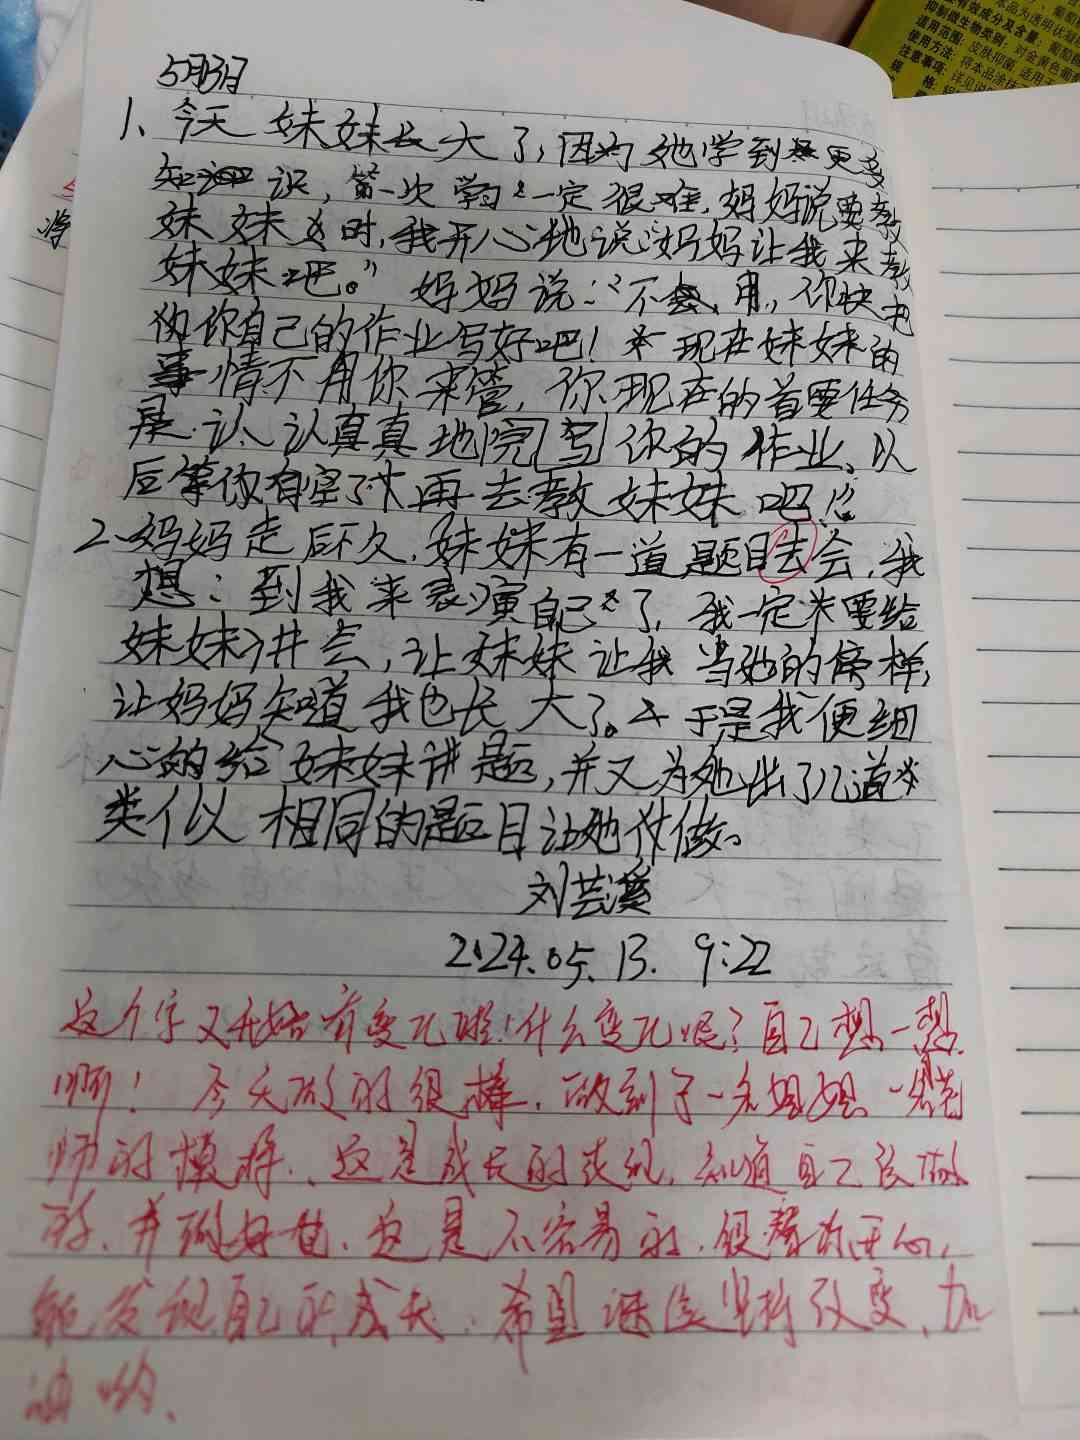 5月13日
1、今天妹妹长大了,因为她学到更多
知识,第一次学习一定很难,妈妈说要教
妹妹时,我开心地说:“妈妈让我来教
妹妹吧。”妈妈说:“不用,你快把
你自己的作业写好吧!现在妹妹的
事情不用你来管,你现在的首要任务
是认认真真地完写你的作业、以
后等你有空了再去教妹妹吧!”
2、妈妈走后不久,妹妹有一道题目去会,我
想:到我来表演自己了,我一定要给
妹妹讲会,让妹妹让我当她的榜样,
让妈妈知道我也长大了。于是我便细
心的给妹妹讲题,并又为她出了几道
类似相同的题目让她做。
刘芸溪
2024.05.13. 9:22
这个字又开始有变化啦!什么变化呢?自己想一想
啊!今天做的很棒,做到了一名姐姐、一名老
师的榜样、这是成长的表现,知道自己该做
的、并做好它、这是不容易的,很替你开心,
能发现自己的成长,希望继续坚持改变、加
油哟、
抑制微生物类别:对金黄色葡
适用范围:皮肤抑菌
使用方法:
注意事项:详见说